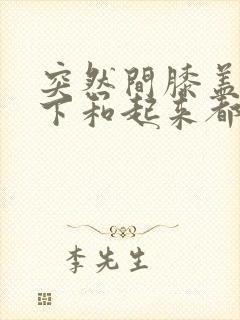 突然間膝蓋
下和起来都
李先生